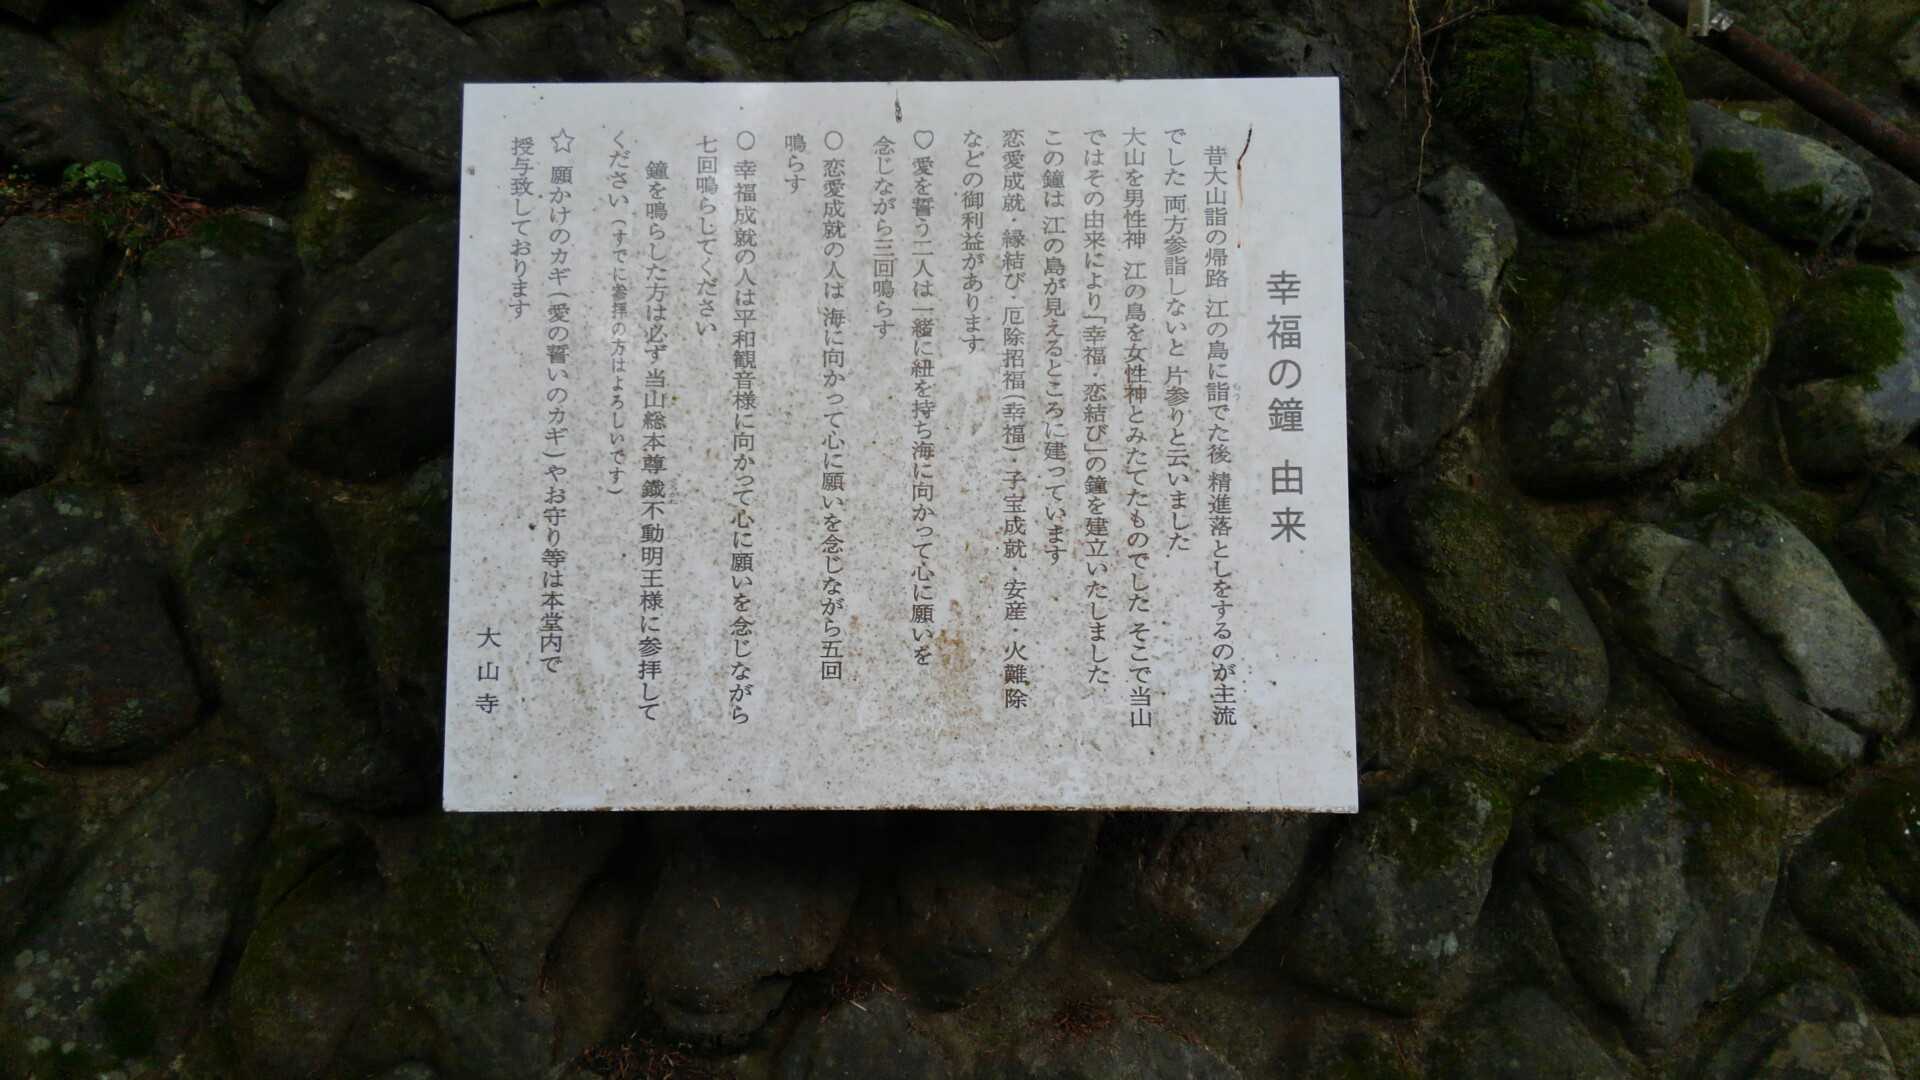 幸福の鐘 由来
昔大山詣の帰路 江の島に詣でた後 精進落としをするのが主流
でした 両方参詣しないと 片参りと云いました
大山を男性神 江の島を女性神とみたてたものでした そこで当山
ではその由来により「幸福・恋結び」の鐘を建立いたしました
この鐘は 江の島が見えるところに建っています
恋愛成就・縁結び・厄除招福(幸福)・子宝成就・安産・火難除
などの御利益があります
♡ 愛を誓う二人は一緒に紐を持ち海に向かって心に願いを
念じながら三回鳴らす
○ 恋愛成就の人は 海に向かって心に願いを念じながら五回
鳴らす
○ 幸福成就の人は平和観音様に向かって心に願いを念じながら
七回鳴らしてください
鐘を鳴らした方は必ず当山総本尊 鐵不動明王様に参拝して
ください(すでに参拝の方はよろしいです)
☆ 願かけのカギ(愛の誓いのカギ)やお守り等は本堂内で
授与致しております
大山寺